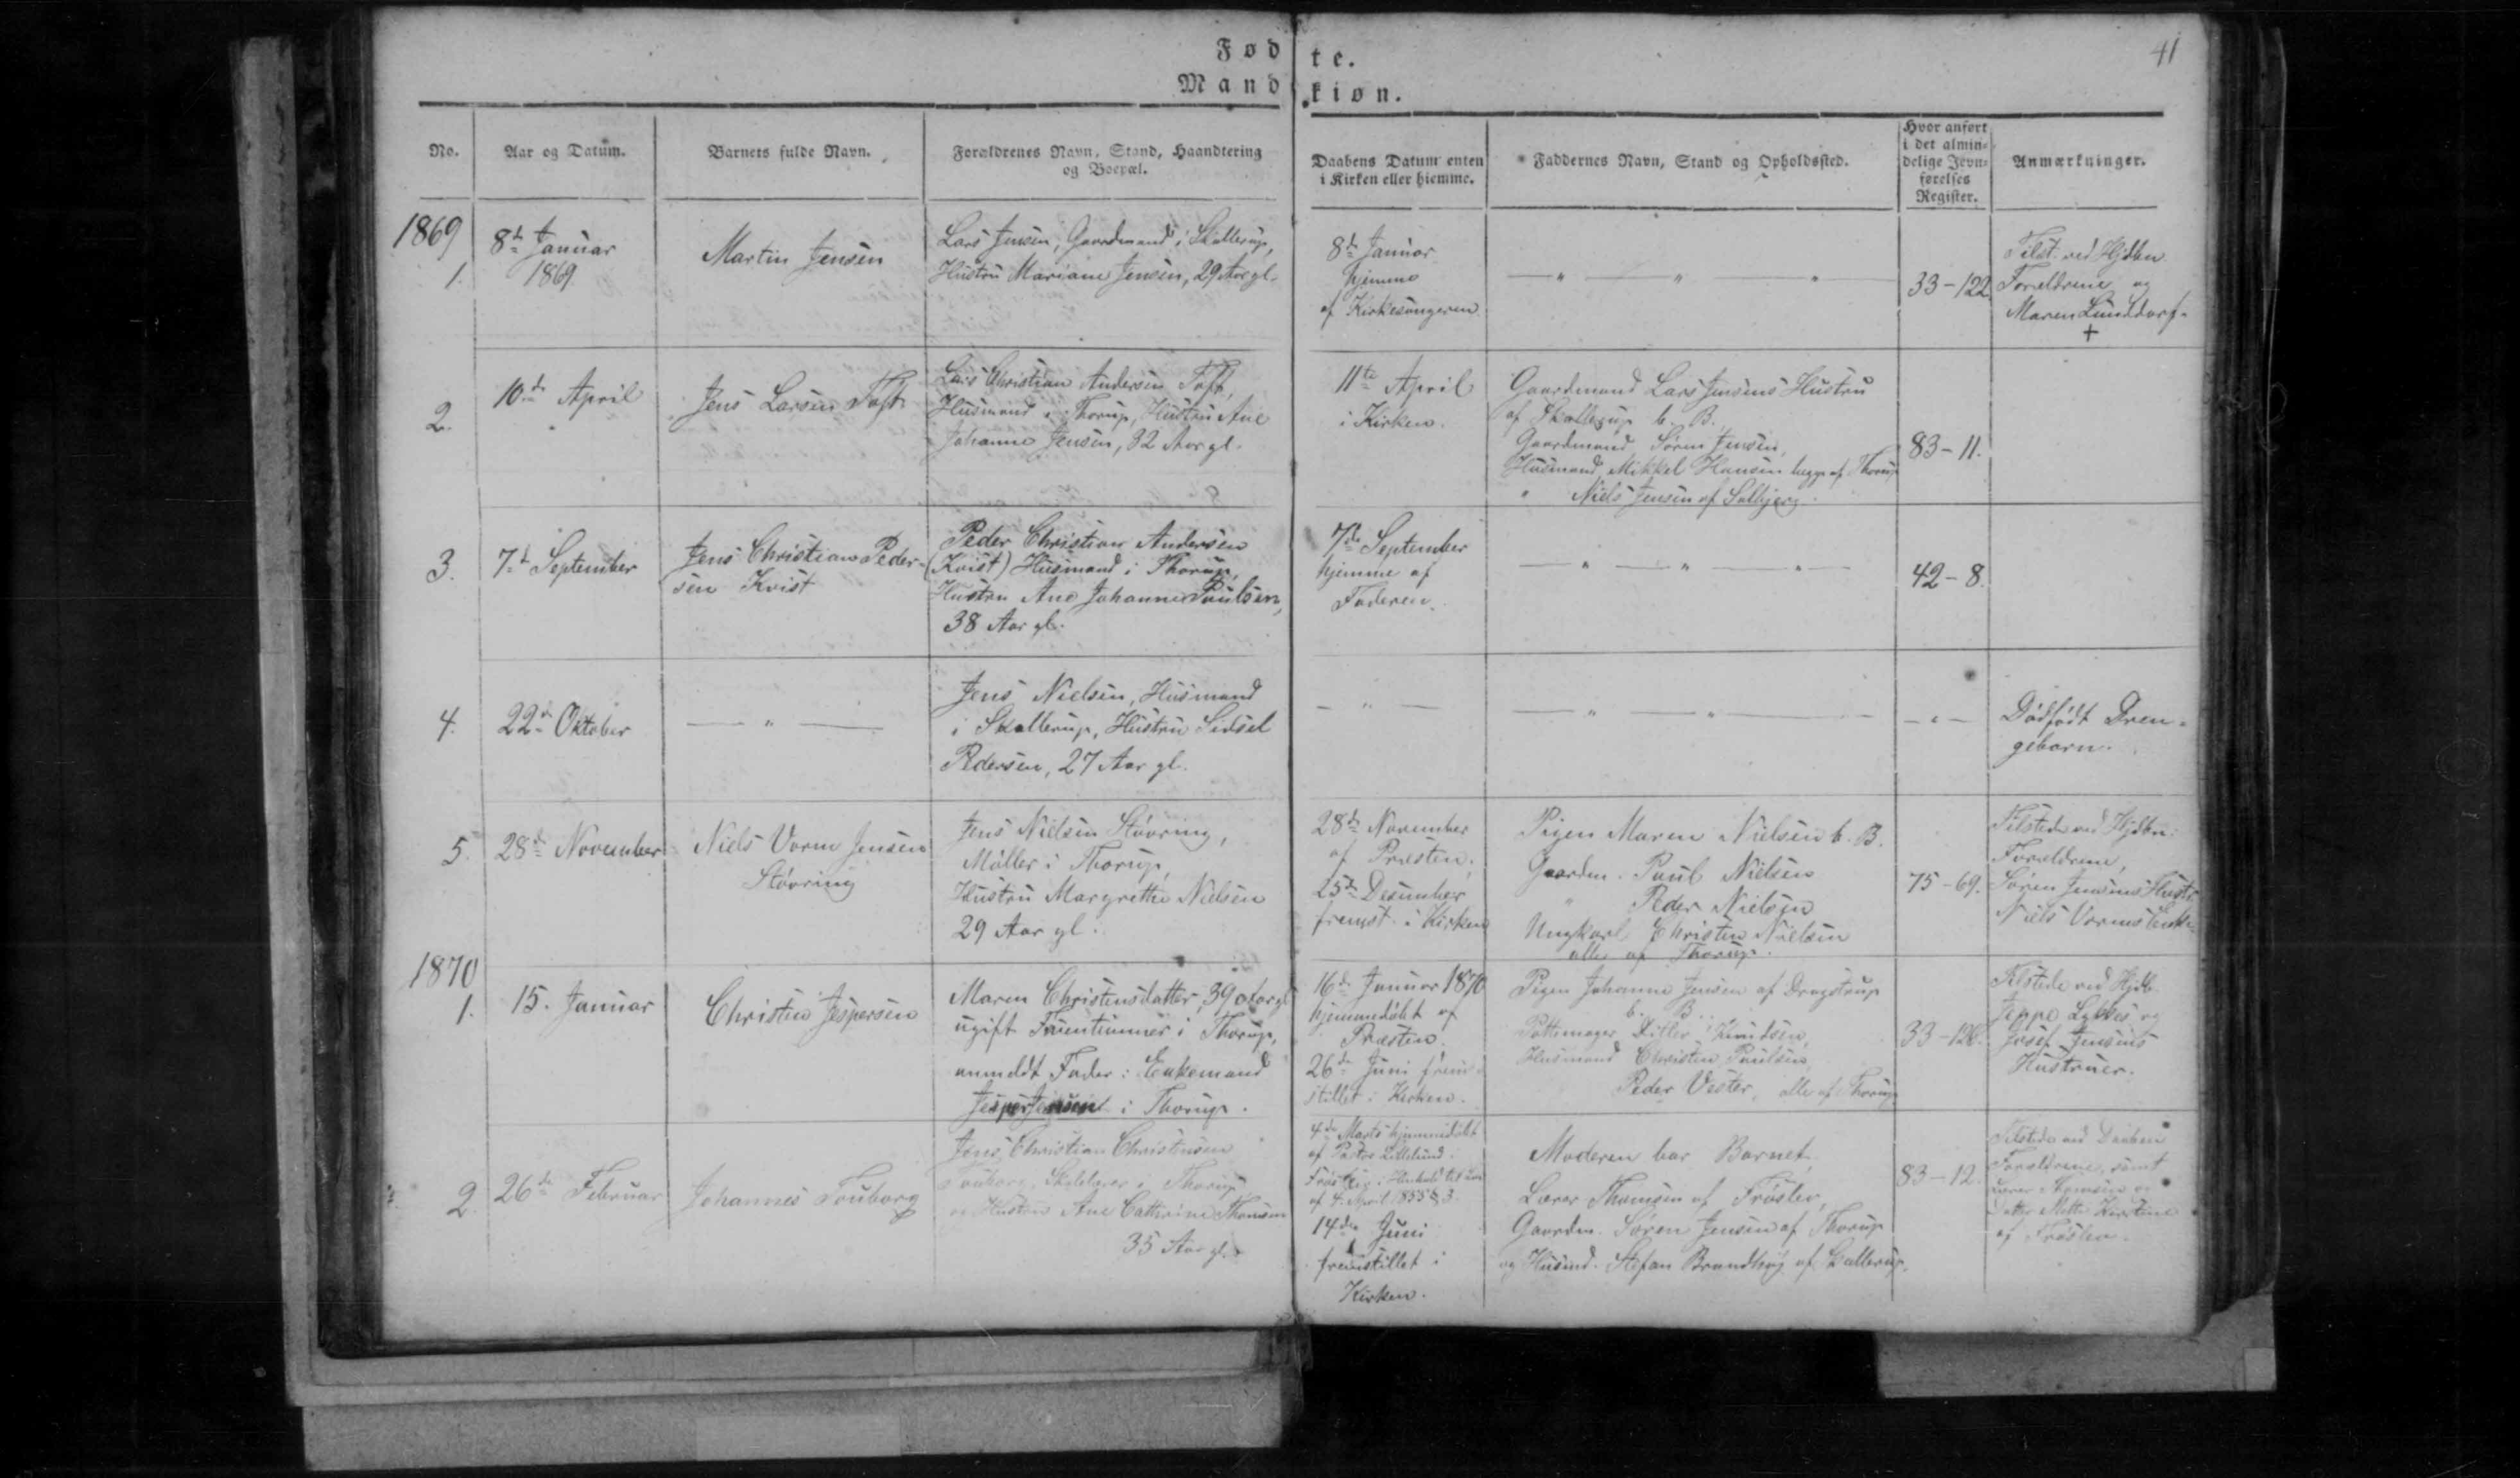 Fødte.
Mandkiøn.
41
No.
Aar og Datum.
Barnets fulde Navn.
Forældrenes Navn, Stand, Haandtering
og Boepæl.
Daabens Datum enten
i Kirken eller hiemme.
Faddernes Navn, Stand og Opholdssted.
Hvor anført
i det almin-
delige Jevn-
førelses
Register.
Anmærkninger.
1869
1.
8de Januar
1869.
Martin Jensen
Lars Jensen, Gaardmand i Skallerup,
Hustru Mariane Jensen, 29 Aar gl.
8de Januar
hjemme
af Kirkesangeren.
— " — " — " —
33-122.
Tilst. ved Hjdbn
Forældrene og
Maren Lunddorf.
+
2.
10de April
Jens Larsen Toft
Lars Christian Andersen Toft,
Husmand i Thorup, Hustru Ane
Johanne Jensen, 32 Aar gl.
11te April
i Kirken.
Gaardmand Lars Jensens Hustru
af Skallerup b. B.
Gaardmand Søren Jensen,
Husmand Mikkel Hansen begge af Thorup
" Niels Jensen af Solbjerg.
83-11.
3.
7de September
Jens Christian Peder-
sen Kvist
Peder Christian Andersen
(Kvist) Husmand i Thorup,
Hustru Ane Johanne Poulsen,
38 Aar gl.
7de September
hjemme af
Faderen.
— " — " — " —
42-8.
4.
22de Oktober
— " —
Jens Nielsen, Husmand
i Skallerup, Hustru Sidsel
Pedersen, 27 Aar gl.
— " —
— " — " —
— " —
Dødfødt Dren-
gebarn.
5.
28de November
Niels Vorm Jensen
Støvring
Jens Nielsen Støvring,
Møller i Thorup,
Hustru Margrethe Nielsen
29 Aar gl.
28de November
af Præsten.
25de Desember
fremst. i Kirken
Pigen Maren Nielsen b. B.
Gaardm. Poul Nielsen
" Peder Nielsen
Ungkarl Christen Nielsen
alle af Thorup.
75-69.
Tilstede ved Hjdbn:
Forældrene,
Søren Jensens Hustr.
Niels Vorms
1870
1.
15. Januar
Christen Jespersen
Maren Christensdatter, 39 Aar gl
ugift Fruentimmer i Thorup,
anmeldt Fader: Enkemand
Jesper Jensen i Thorup.
16de Januar 1870
hjemmedøbt af
Præsten.
26de Juni frem-
stillet i Kirken.
Pigen Johanne Jensen af Dragstrup
b. B.
Pottemager Ditlev Knudsen,
Husmand Christen Poulsen,
Peder Vester, alle af Thorup
33-126.
Tilstede ved Hjdb.
Jeppe Lykkes og
Josef Jensens
Hustruer.
2.
26de Februar
Johannes Touborg
Jens Christian Christensen
Touborg, Skolelærer i Thorup
og Hustru Ane Cathrine Thomsen
35 Aar gl.
4de Marts hjemmedøbt
af Pastor Lillelund i
Frøslev i Henhold til Lov
af 4. April 1855 § 3.
14de Juni
fremstillet i
Kirken.
Moderen bar Barnet.
Lærer Thomsen af Frøslev,
Gaardm. Søren Jensen af Thorup
og Husmd. Stefan Brandhøj af Skallerup.
83-12.
Tilstede ved Daaben
Forældrene, samt
Lærer Thomsen og
Datter Mette Kirstine
af Frøslev.